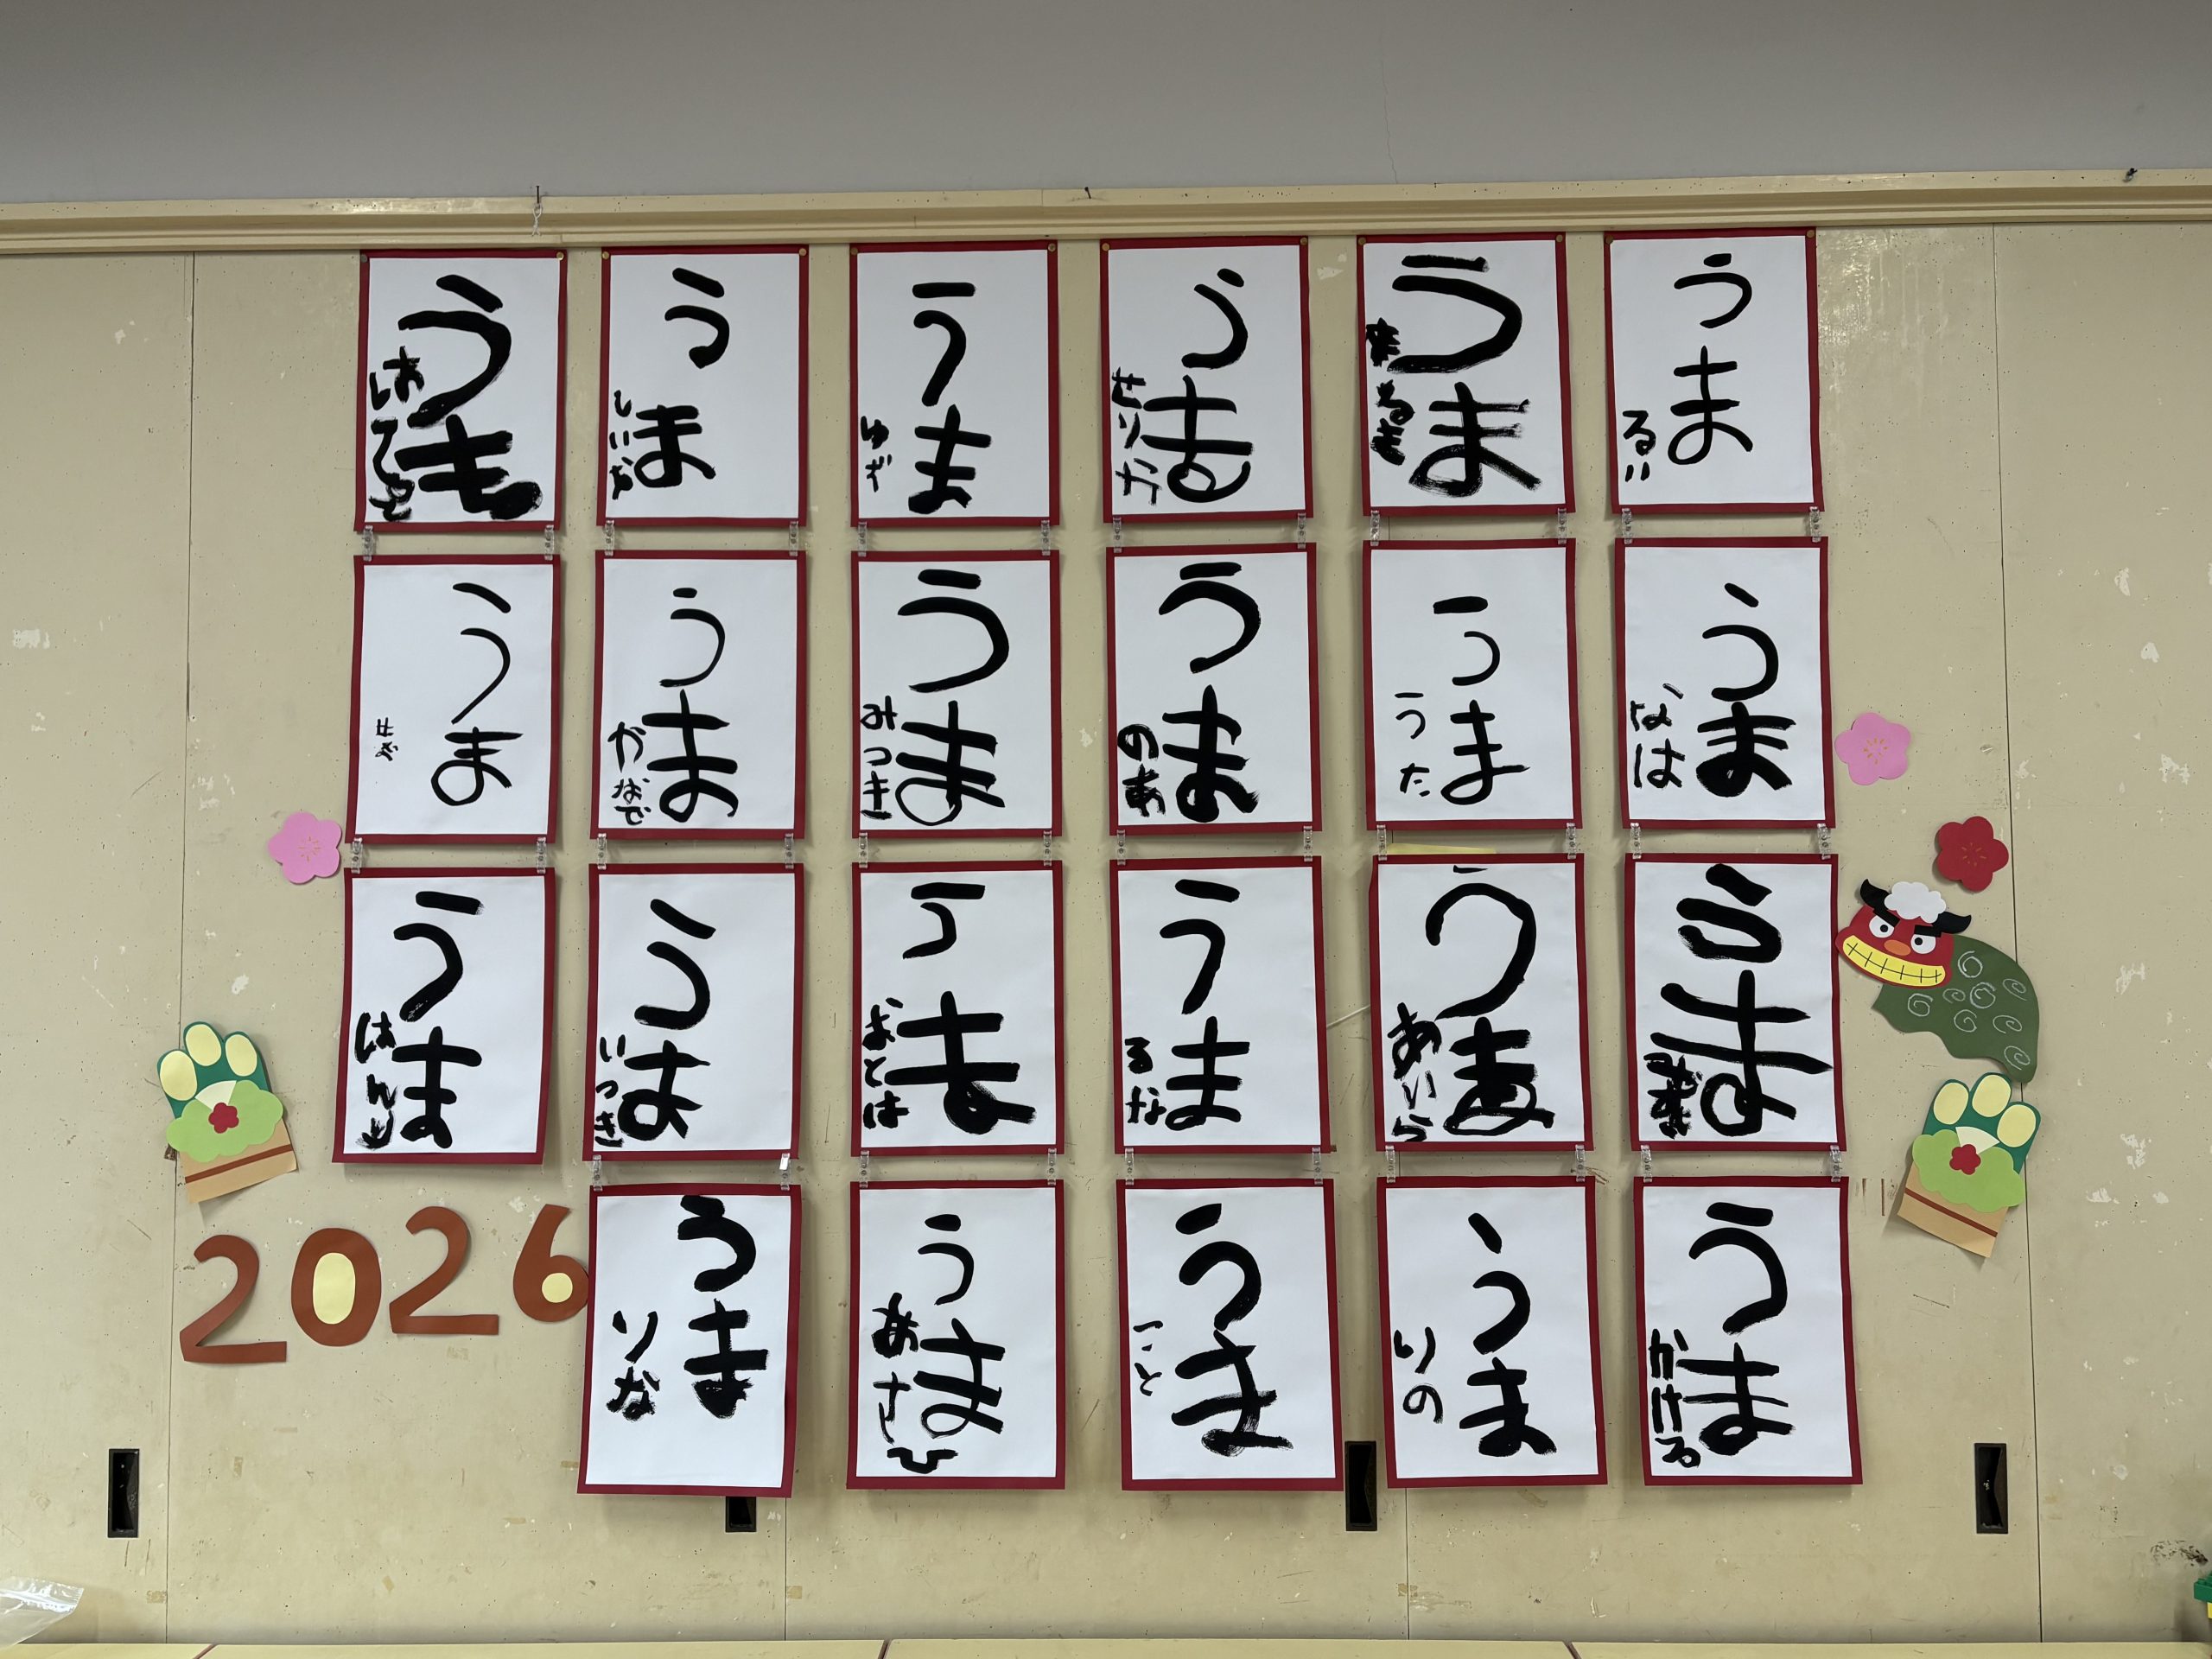 うま
うま
しいな
うま
ゆず
うま
せりか
うま
うま
るい
うま
うま
かなで
うま
みつき
うま
のあ
うま
うた
うま
なほ
うま
うま
いつき
うま
おとは
うま
るな
うま
あいら
うま
2026
うま
りな
うま
あさひ
うま
こと
うま
りの
うま
かける